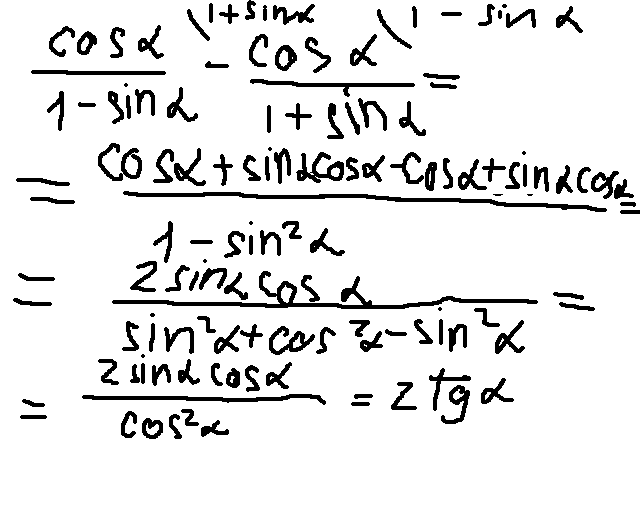 \frac{cos α}{1 - sin α}^{\1 + sin α} - \frac{cos α}{1 + sin α}^{\1 - sin α} =
= \frac{cos α + sin α cos α - cos α + sin α cos α}{1 - sin² α} =
= \frac{2 sin α cos α}{sin² α + cos² α - sin² α} =
= \frac{2 sin α cos α}{cos² α} = 2 tg α